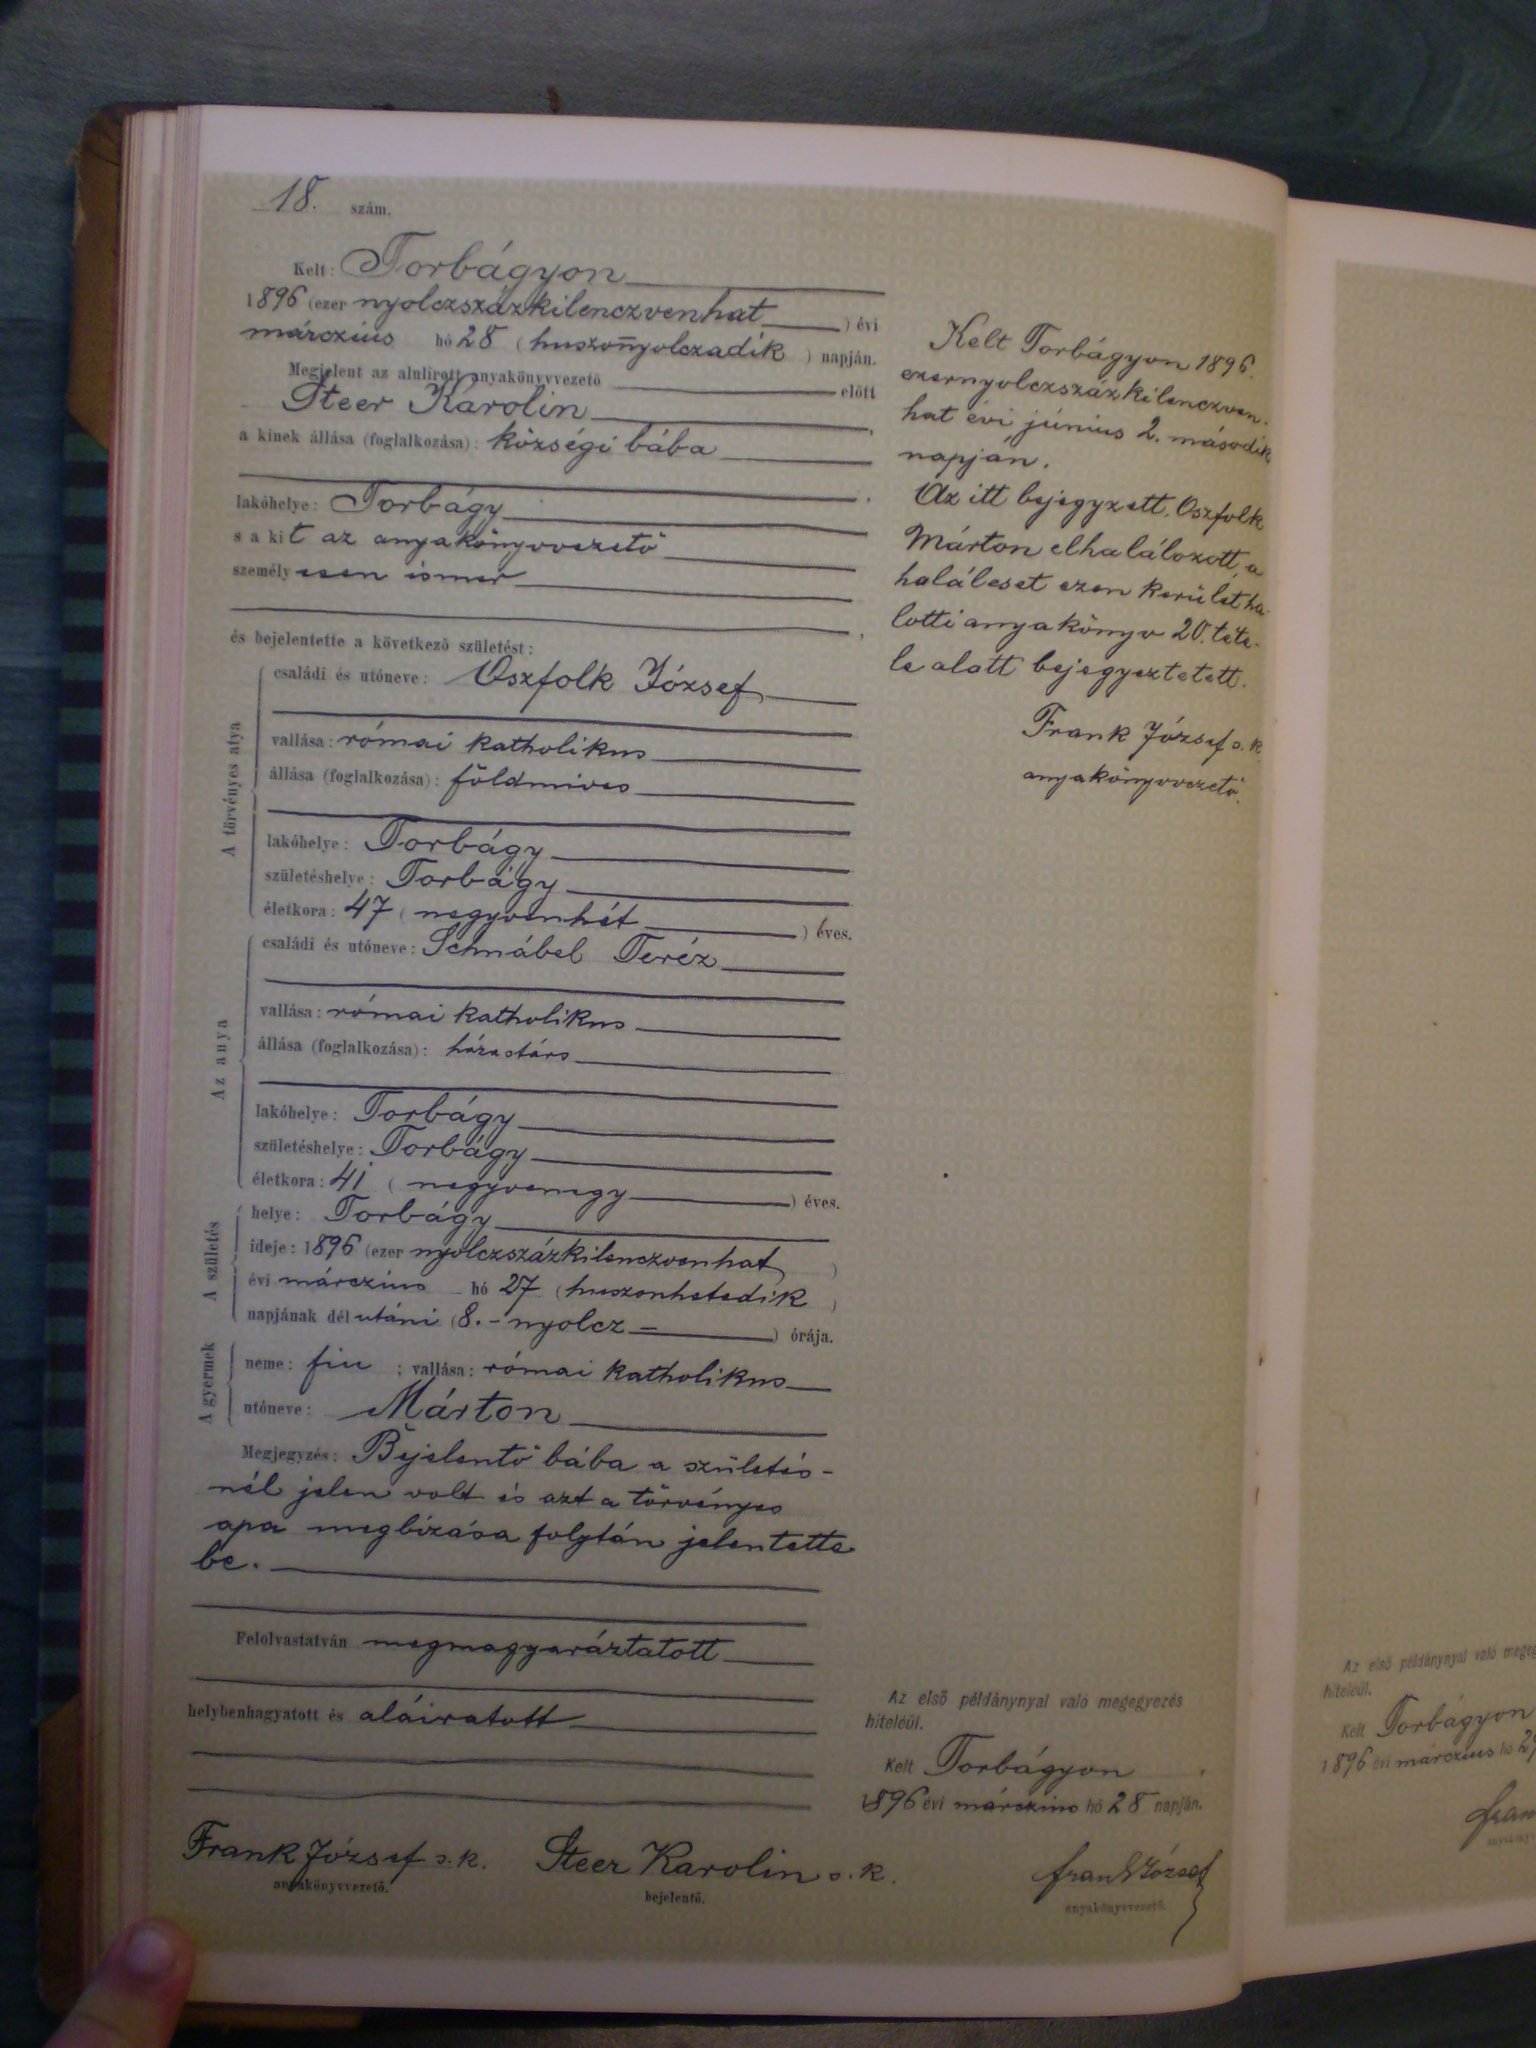 18. szám.
Kelt: Torbágyon
1896 (ezer nyolczszázkilenczvenhat) évi
márczius hó 28 (huszonnyolczadik) napján.
Megjelent az alulirott anyakönyvvezető előtt
Steer Karolin,
a kinek állása (foglalkozása): községi bába
lakóhelye: Torbágy
s a kit az anyakönyvvezető
személyesen ismer
és bejelentette a következő születést:
A törvényes atya
családi és utóneve: Oszfolk József
vallása: római katholikus
állása (foglalkozása): földmives
lakóhelye: Torbágy
születéshelye: Torbágy
életkora: 47 (negyvenhét) éves.
Az anya
családi és utóneve: Schnábel Teréz
vallása: római katholikus
állása (foglalkozása): házastárs
lakóhelye: Torbágy
születéshelye: Torbágy
életkora: 41 (negyvenegy) éves.
A születés
helye: Torbágy
ideje: 1896 (ezer nyolczszázkilenczvenhat)
évi márczius hó 27 (huszonhetedik)
napjának dél utáni (8.- nyolcz -) órája.
A gyermek
neme: fiu; vallása: római katholikus
utóneve: Márton
Megjegyzés: Bejelentő bába a születés-
nél jelen volt és azt a törvényes
apa megbízása folytán jelentette
be.
Felolvastatván megmagyaráztatott
helybenhagyatott és aláiratott
Frank József s.k. Steer Karolin s.k.
anyakönyvvezető. bejelentő.
Kelt Torbágyon 1896.
ezernyolczszázkilenczven-
hat évi június 2. második
napján.
Az itt bejegyzett Oszfolk
Márton elhalálozott, a
haláleset ezen kerület ha-
lotti anyakönyv 20. téte-
le alatt bejegyeztetett.
Frank József s.k.
anyakönyvvezető.
Az első példánynyal való megegyezés
hiteléül.
Kelt Torbágyon
1896 évi márczius hó 28 napján.
Frank József
anyakönyvvezető.
Az első példánynyal való
hiteléül.
Kelt Torbágyon
1896 évi márczius hó